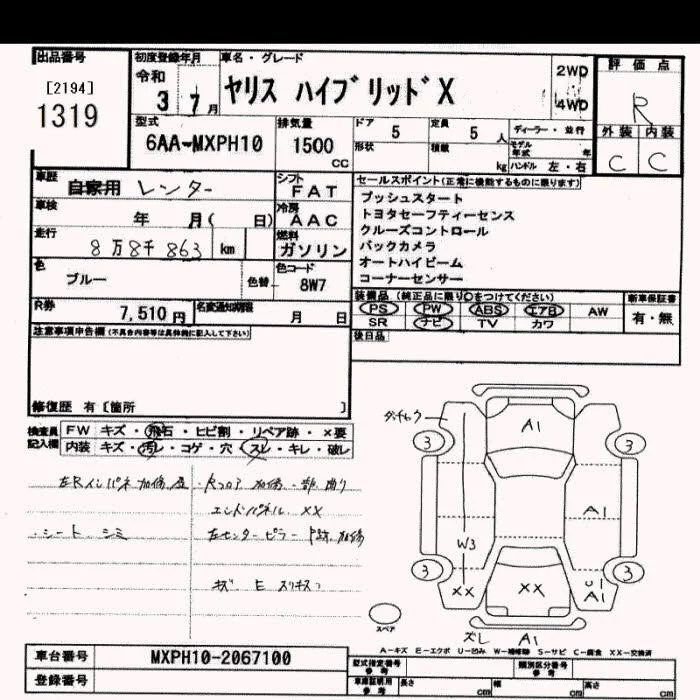 出品番号
[2194]
1319
初度登録年月
令和
3 7 月
車名・グレード
ヤリス ハイブリッドX
2WD
4WD
評価点
R
外装 内装
C C
型式
6AA-MXPH10
排気量
1500
cc
ドア 5
定員 5 人
形状
積載 kg
ディーラー・並行
モデル年式 年
ハンドル 左・右
車歴
自家用 レンター
シフト
FAT
車検
年 月( 日)
冷房
AAC
走行
8万8千863 km
燃料
ガソリン
色
ブルー
色替
色コード
8W7
R券
7,510円
名変通知期限
月 日
セールスポイント(正常に機能するものに限ります)
プッシュスタート
トヨタセーフティーセンス
クルーズコントロール
バックカメラ
オートハイビーム
コーナーセンサー
装備品 (純正品に限り○をつけてください)
PS PW ABS エアB AW
SR ナビ TV カワ
新車保証書
有・無
後日品
注意事項申告欄(不具合内容等は具体的に記入して下さい)
修復歴 有[箇所 ]
検査員記入欄
FW キズ・飛石・ヒビ割・リペア跡・×要
内装 キズ・汚レ・コゲ・穴・スレ・キレ・破レ
左Rインパネ加修歪
・シート シミ
・Rフロア 加修・一部曲り
エンドパネル XX
左センターピラー
ダッチャク
A1
3
3
A1
W3
3
3
XX
XX
U1
A1
ズレ
A1
スペア
A-キズ E-エクボ U-凹み W-補修跡 S-サビ C-腐食 XX-交換済
車台番号
MXPH10-2067100
登録番号
型式指定番号
参考
類別区分番号
参考
車庫証明用
参考
長さ cm
幅 cm
高さ cm